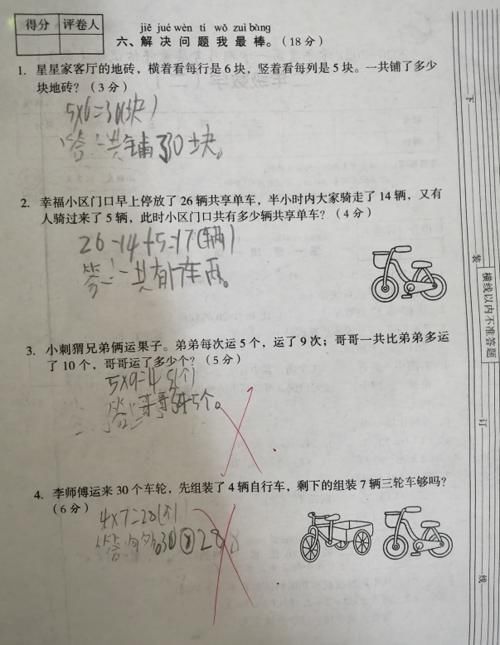 得分 评卷人
jiě jué wèn tí wǒ zuì bàng
六、解 决 问 题 我 最 棒。(18分)
1. 星星家客厅的地砖，横着看每行是6块，竖着看每列是5块。一共铺了多少
块地砖？(3分)
5×6=30(块)
答:一共铺30块。
2. 幸福小区门口早上停放了26辆共享单车，半小时内大家骑走了14辆，又有
人骑过来了5辆，此时小区门口共有多少辆共享单车？(4分)
26-14+5=17(辆)
答:一共有17车两。
3. 小刺猬兄弟俩运果子。弟弟每次运5个，运了9次；哥哥一共比弟弟多运
了10个，哥哥运了多少个？(5分)
5×9=45(个)
答:哥哥45个。
4. 李师傅运来30个车轮，先组装了4辆自行车，剩下的组装7辆三轮车够吗？
(6分)
4×7=28(个)
答: 30 28
装
订
线
横线以内不准答题
下